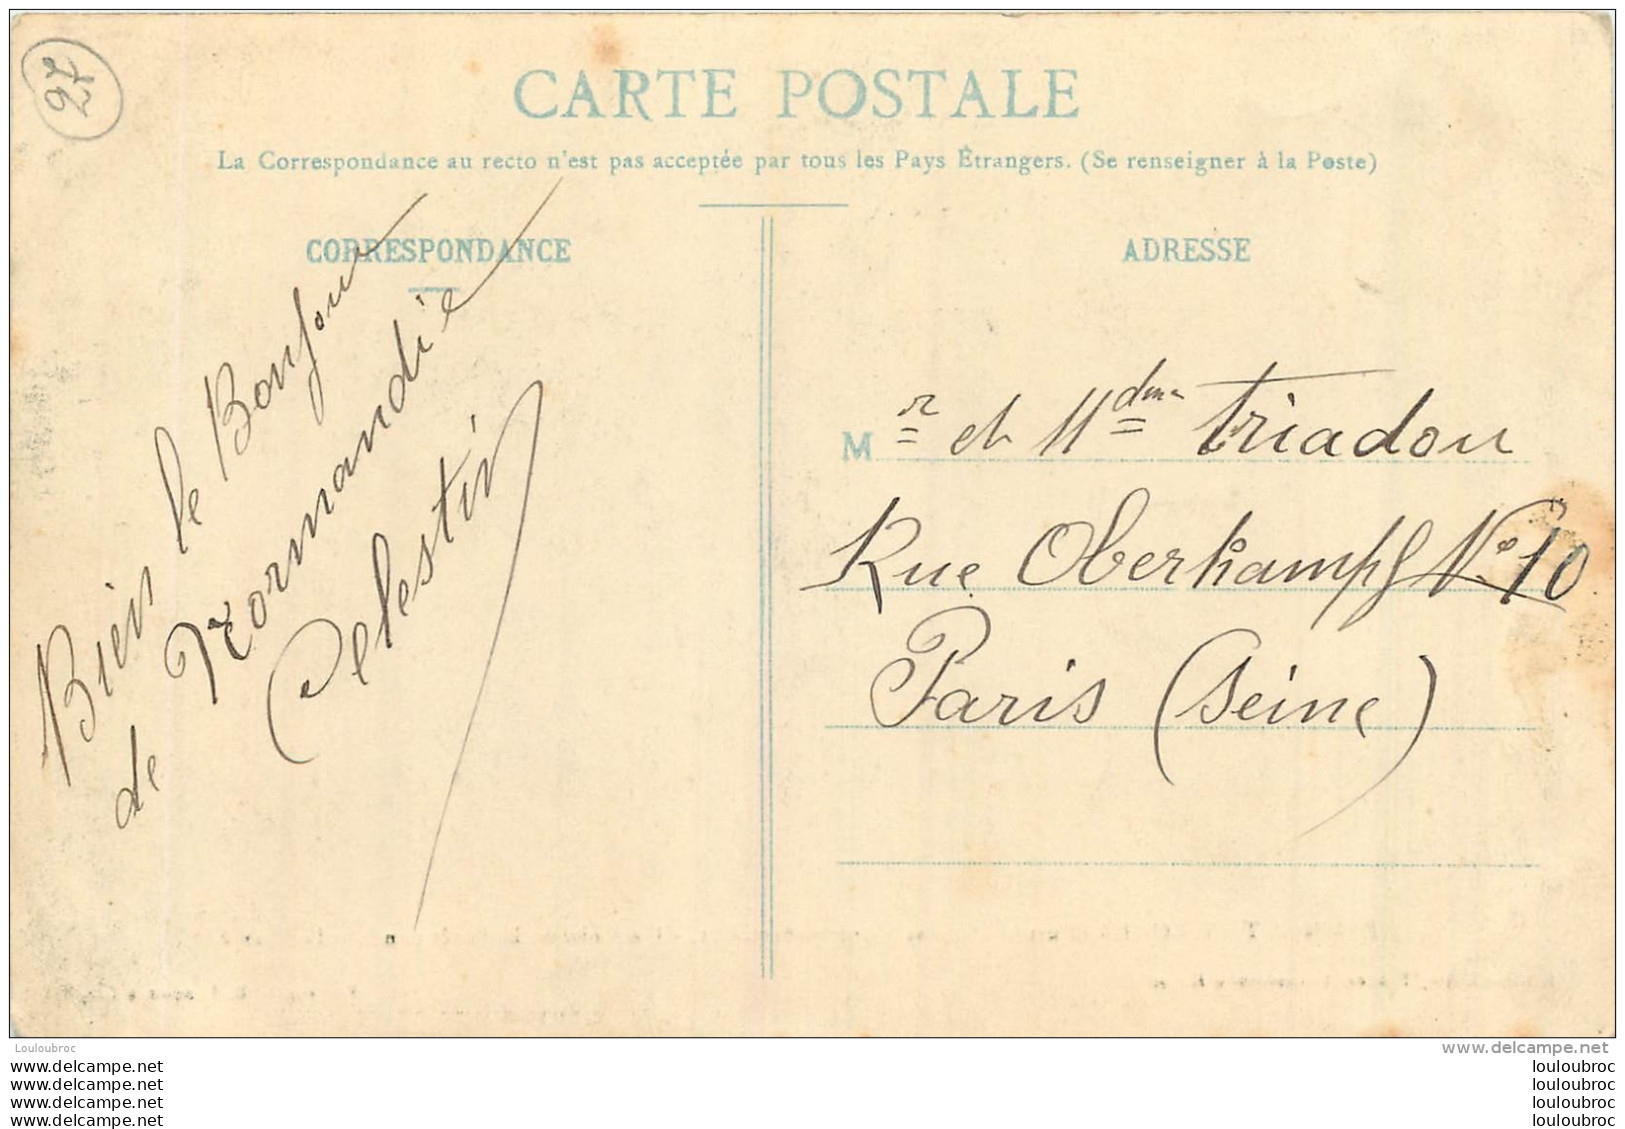 27
CARTE POSTALE
La Correspondance au recto n'est pas acceptée par tous les Pays Étrangers. (Se renseigner à la Poste)
CORRESPONDANCE
Bien le Bonjour
de Normandie
Celestin
ADRESSE
M r et Mdme Triadou
Rue Oberkampf No 10
Paris (Seine)
Louloubroc
www.delcampe.net
www.delcampe.net
www.delcampe.net
www.delcampe.net
www.delcampe.net
louloubroc
louloubroc
louloubroc
louloubroc